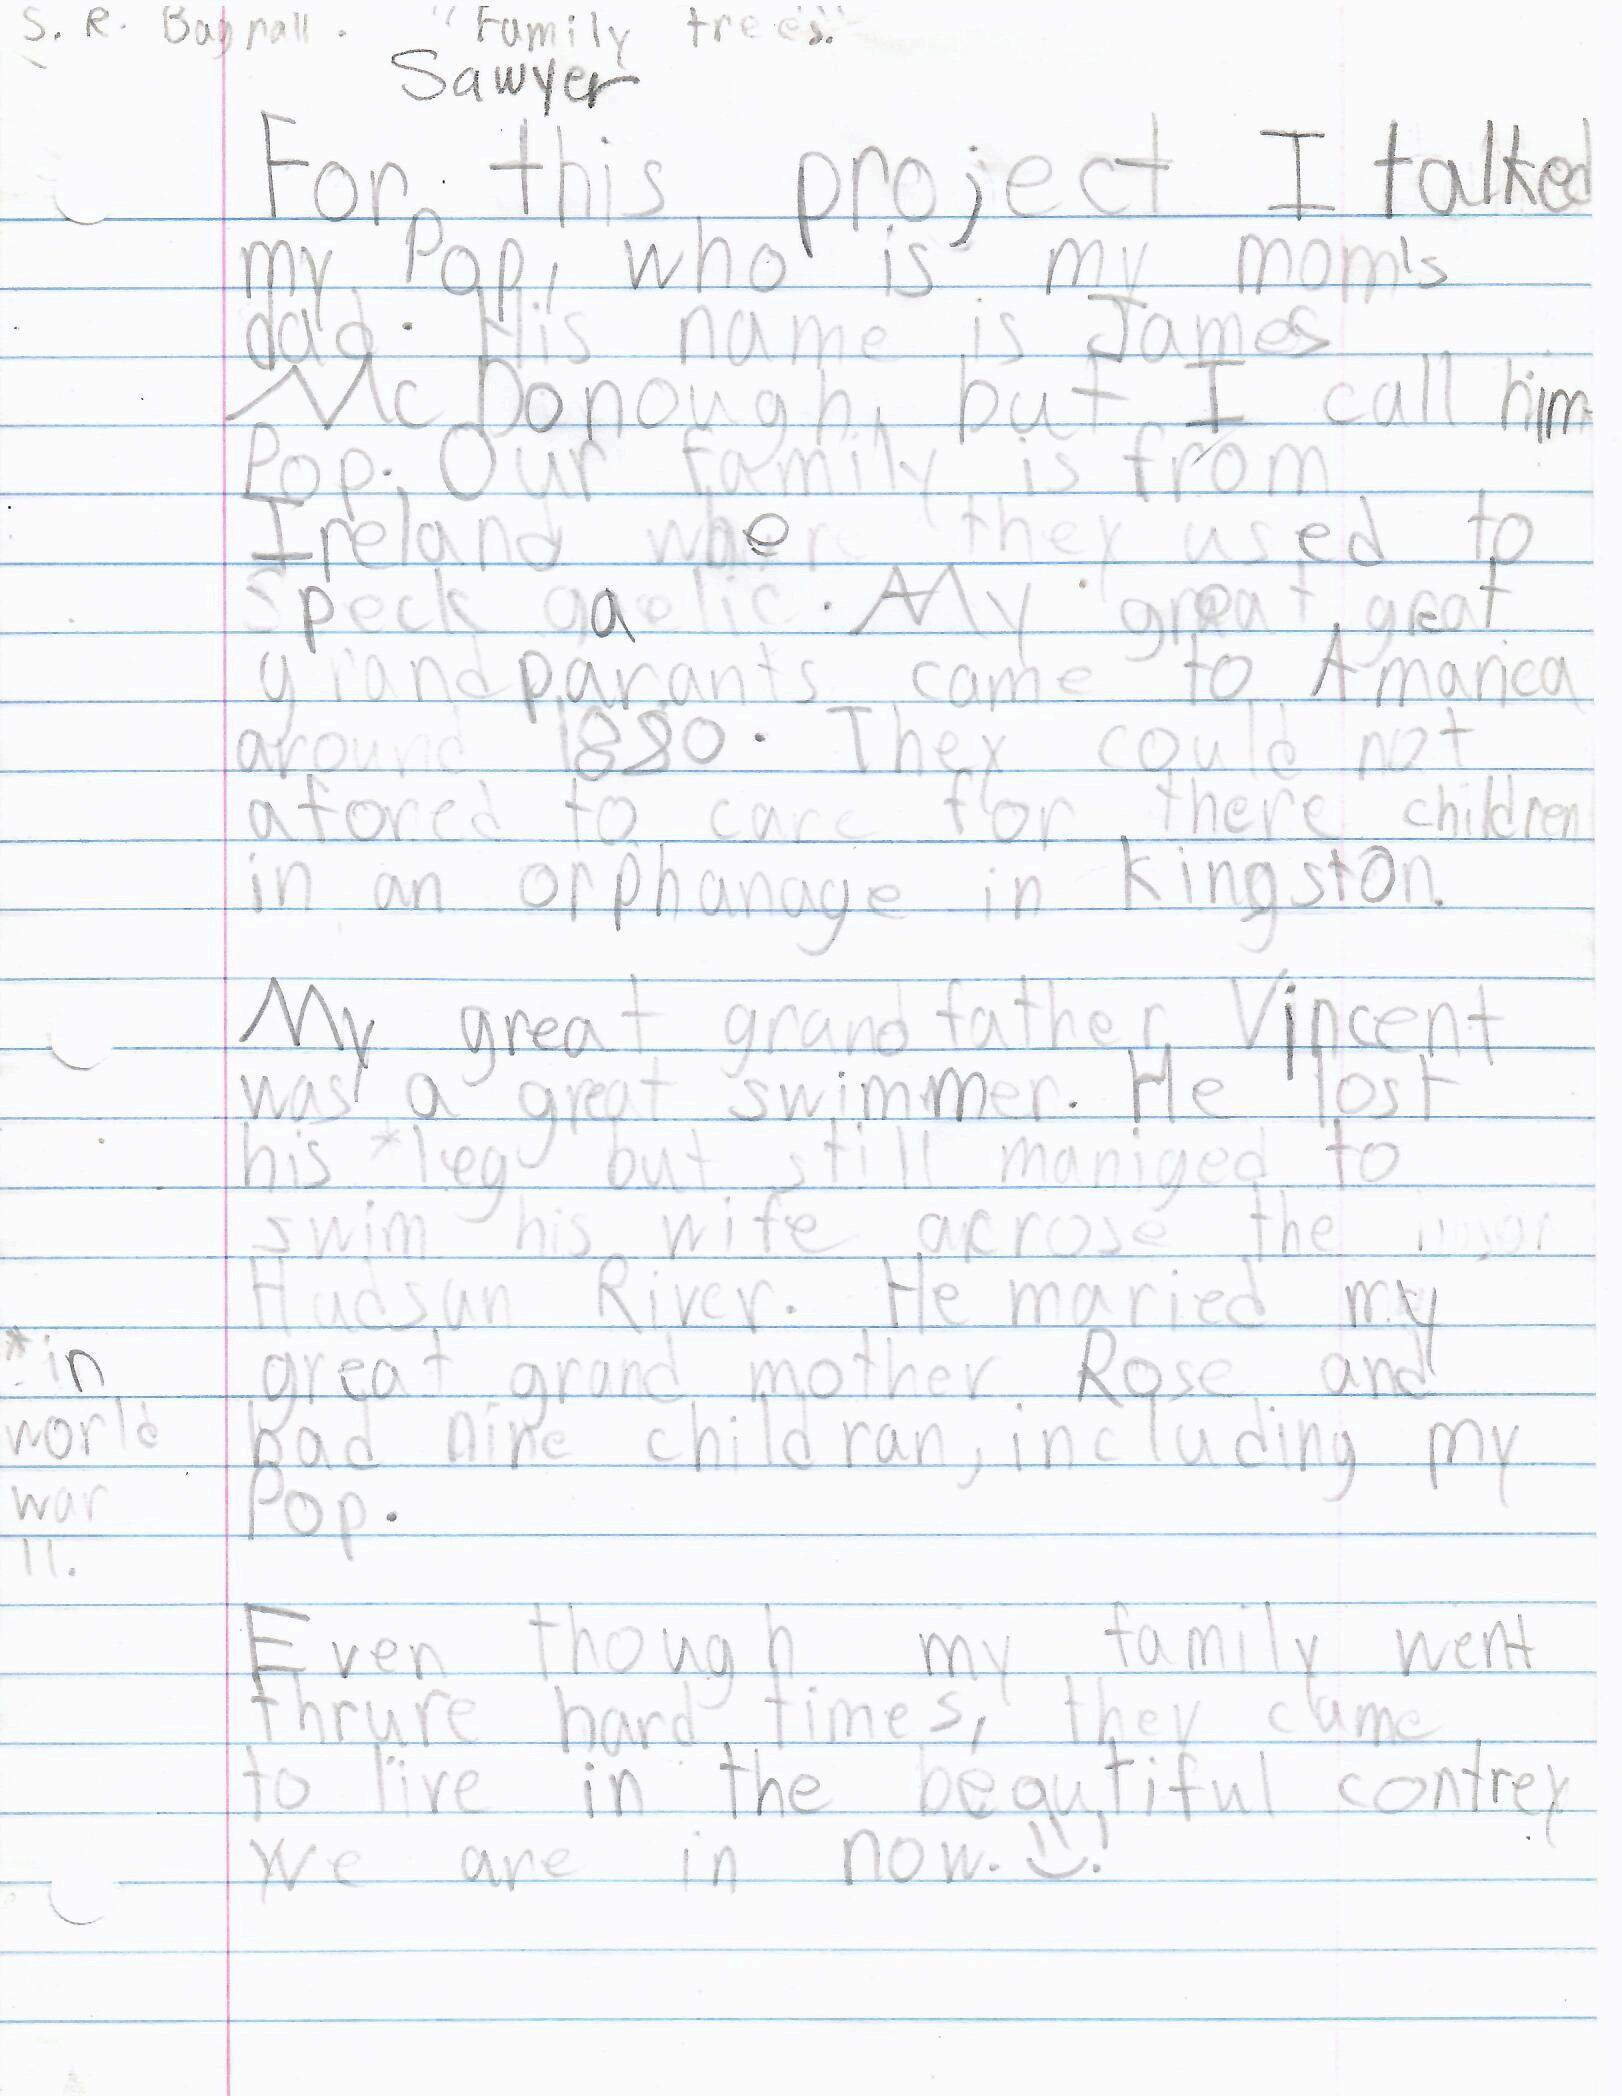 S. R. Bagnall. "Family trees."
Sawyer
For this project I talked
my Pop, who is my mom's
dad. His name is James
McDonough, but I call him
Pop. Our family is from
Ireland where they used to
speck gaelic. My great great
grandparants came to Amarica
around 1880. They could not
afored to care for there children
in an orphanage in Kingston.
My great grandfather Vincent
was a great swimmer. He lost
his *leg but still maniged to
swim his wife acrose the
Hudsun River. He maried my
great grand mother Rose and
had nine childran, including my
Pop.
*in
world
war
II.
Even though my family went
thrure hard times, they came
to live in the beautiful contrey
we are in now. !